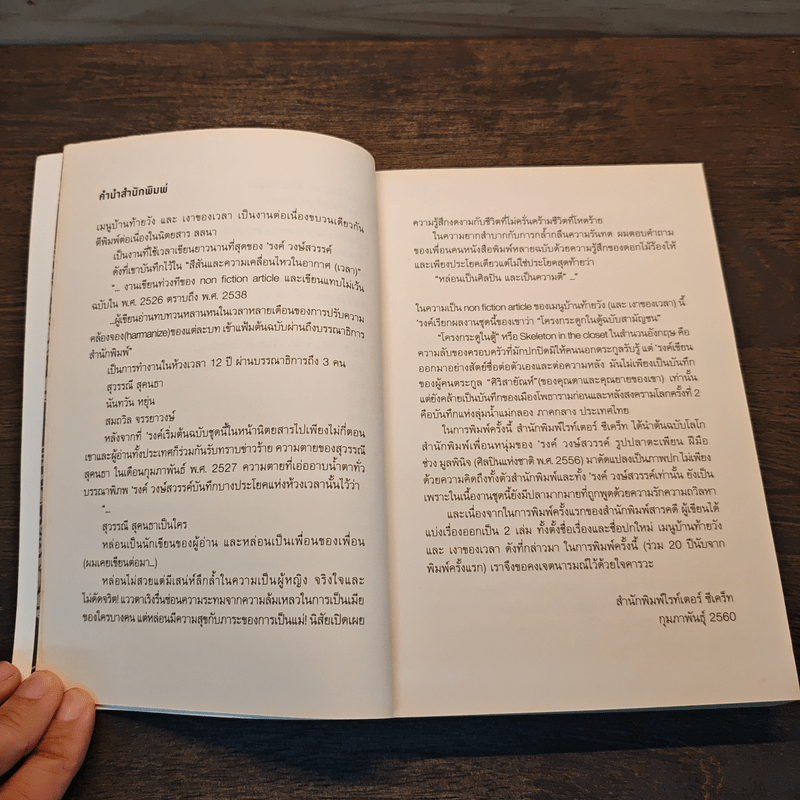 คำนำสำนักพิมพ์
เมนูบ้านท้ายวัง และ เงาของเวลา เป็นงานต่อเนื่องขบวนเดียวกัน
ตีพิมพ์ต่อเนื่องในนิตยสาร ลลนา
เป็นงานที่ใช้เวลาเขียนยาวนานที่สุดของ 'รงค์ วงษ์สวรรค์
ดังที่เขาบันทึกไว้ใน "สีสันและความเคลื่อนไหวในอากาศ (เวลา)"
"... งานเขียนท่วงทีของ non fiction article และเขียนแทบไม่เว้น
ฉบับใน พ.ศ. 2526 ตราบถึง พ.ศ. 2538
...ผู้เขียนอ่านทบทวนหลานหนในเวลาหลายเดือนของการปรับความ
คล้องจอง(harmanize)ของแต่ละบท เข้าแฟ้มต้นฉบับผ่านถึงบรรณาธิการ
สำนักพิมพ์"
เป็นการทำงานในห้วงเวลา 12 ปี ผ่านบรรณาธิการถึง 3 คน
สุวรรณี สุคนธา
นันทวัน หยุ่น
สมถวิล จรรยาวงษ์
หลังจากที่ 'รงค์เริ่มต้นฉบับชุดนี้ในหน้านิตยสารไปเพียงไม่กี่ตอน
เขาและผู้อ่านทั้งประเทศก็ร่วมกันรับทราบข่าวร้าย ความตายของสุวรรณี
สุคนธา ในเดือนกุมภาพันธ์ พ.ศ. 2527 ความตายที่เอ่ออาบน้ำตาทั่ว
บรรณาพิภพ 'รงค์ วงษ์สวรรค์บันทึกบางประโยคแห่งห้วงเวลานั้นไว้ว่า
"...
สุวรรณี สุคนธาเป็นใคร
หล่อนเป็นนักเขียนของผู้อ่าน และหล่อนเป็นเพื่อนของเพื่อน
(ผมเคยเขียนต่อมา...)
หล่อนไม่สวยแต่มีเสน่ห์ลึกล้ำในความเป็นผู้หญิง จริงใจและ
ไม่ดัดจริต! แววตาเริงรื่นซ่อนความระทมจากความล้มเหลวในการเป็นเมีย
ของใครบางคน แต่หล่อนมีความสุขกับภาระของการเป็นแม่! นิสัยเปิดเผย
ความรู้สึกงดงามกับชีวิตที่ไม่ครั่นคร้ามชีวิตที่โหดร้าย
ในความยากลำบากกับการกล้ำกลืนความรันทด ผมตอบคำถาม
ของเพื่อนคนหนังสือพิมพ์หลายฉบับด้วยความรู้สึกของดอกไม้ร้องไห้
และเพียงประโยคเดียวแต่ไม่ใช่ประโยคสุดท้ายว่า
"หล่อนเป็นศิลปิน และเป็นความดี" ..."
ในความเป็น non fiction article ของเมนูบ้านท้ายวัง (และ เงาของเวลา) นี้
'รงค์เรียกผลงานชุดนี้ของเขาว่า "โครงกระดูกในตู้ฉบับสามัญชน"
"โครงกระดูกในตู้" หรือ Skeleton in the closet ในสำนวนอังกฤษ คือ
ความลับของครอบครัวที่มักปกปิดมิให้คนนอกตระกูลรับรู้ แต่ 'รงค์เขียน
ออกมาอย่างสัตย์ซื่อต่อตัวเองและต่อความหลัง มันไม่เพียงเป็นบันทึก
ของผู้คนตระกูล "ศิริสายัณห์"(ของคุณตาและคุณยายของเขา) เท่านั้น
แต่ยังคล้ายเป็นบันทึกของเมืองโพธารามก่อนและหลังสงครามโลกครั้งที่ 2
คือบันทึกแห่งลุ่มน้ำแม่กลอง ภาคกลาง ประเทศไทย
ในการพิมพ์ครั้งนี้ สำนักพิมพ์ไรท์เตอร์ ซีเคร็ท ได้นำต้นฉบับโลโก
สำนักพิมพ์เพื่อนหนุ่มของ 'รงค์ วงษ์สวรรค์ รูปปลาตะเพียน ฝีมือ
ช่วง มูลพินิจ (ศิลปินแห่งชาติ พ.ศ. 2556) มาดัดแปลงเป็นภาพปก ไม่เพียง
ด้วยความคิดถึงทั้งตัวสำนักพิมพ์และทั้ง 'รงค์ วงษ์สวรรค์เท่านั้น ยังเป็น
เพราะในเนื้องานชุดนี้ยังมีปลามากมายที่ถูกพูดด้วยความรักความถวิลหา
และเนื่องจากในการพิมพ์ครั้งแรกของสำนักพิมพ์สารคดี ผู้เขียนได้
แบ่งเรื่องออกเป็น 2 เล่ม ทั้งตั้งชื่อเรื่องและชื่อปกใหม่ เมนูบ้านท้ายวัง
และ เงาของเวลา ดังที่กล่าวมา ในการพิมพ์ครั้งนี้ (ร่วม 20 ปีนับจาก
พิมพ์ครั้งแรก) เราจึงขอคงเจตนารมณ์ไว้ด้วยใจคารวะ
สำนักพิมพ์ไรท์เตอร์ ซีเคร็ท
กุมภาพันธุ์ 2560